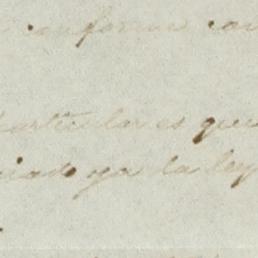 conforme con
particulares que
ciado ya la ley